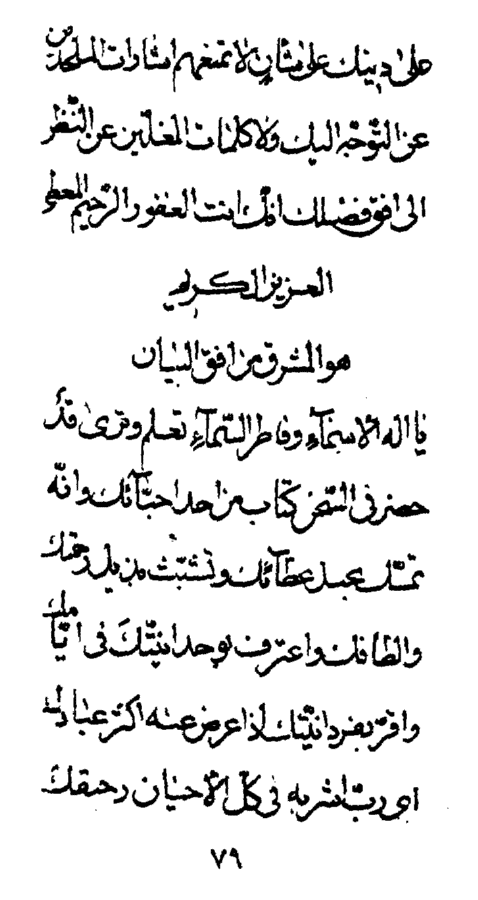 على دينك على شان لا تمنعهم اشارات الملحدين
عن التّوجّه اليك ولا كلمات المغلّين عن النّظر
الى افق فضلك انّك انت الغفور الرّحيم المعطى
العزيز الكريم
هو المشرق من افق البيان
يا اله الاسمآء وفاطر السّمآء تعلم وترى قد
حضر فى السّجن كتاب من احد احبّآئك وانّه
تمسّك بحبل عطآئك وتشبّث بذيل رحمتك
والطافك واعترف بوحدانيّتك فى ايّامك
واقرّ بفردانيّتك اذ اعرض عنه اكثر عبادك
اى ربّ اشربه فى كلّ الاحيان رحيقك
٧٩